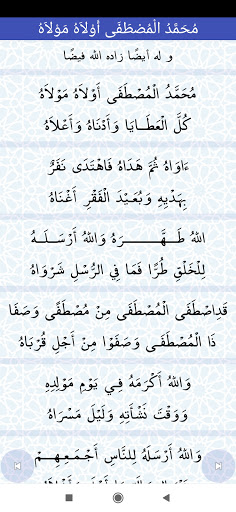 مُحَمَّدُ الْمُصْطَفَى أَوْلَاهُ مَوْلَاهُ
و له أيضًا زاده الله فيضًا
مُحَمَّدُ الْمُصْطَفَى أَوْلَاهُ مَوْلَاهُ
كُلَّ الْعَطَايَا وَأَدْنَاهُ وَأَعْلَاهُ
ءَاوَاهُ ثُمَّ هَدَاهُ فَاهْتَدَى نَفَرٌ
بِهَدْيِهِ وَبُعَيْدَ الْفَقْرِ أَغْنَاهُ
اللهُ طَهَّرَهُ وَاللهُ أَرْسَلَهُ
لِلْخَلْقِ طُرًّا فَمَا فِي الرُّسْلِ شَرْوَاهُ
قَدِاصْطَفَى الْمُصْطَفَى مِنْ مُصْطَفًى وَصَفَا
ذَا الْمُصْطَفَى وَصَفَوْا مِنْ أَجْلِ قُرْبَاهُ
وَاللهُ أَكْرَمَهُ فِي يَوْمِ مَوْلِدِهِ
وَوَقْتَ نَشْأَتِهِ وَلَيْلَ مَسْرَاهُ
وَاللهُ أَرْسَلَهُ لِلنَّاسِ أَجْمَعِهِمْ